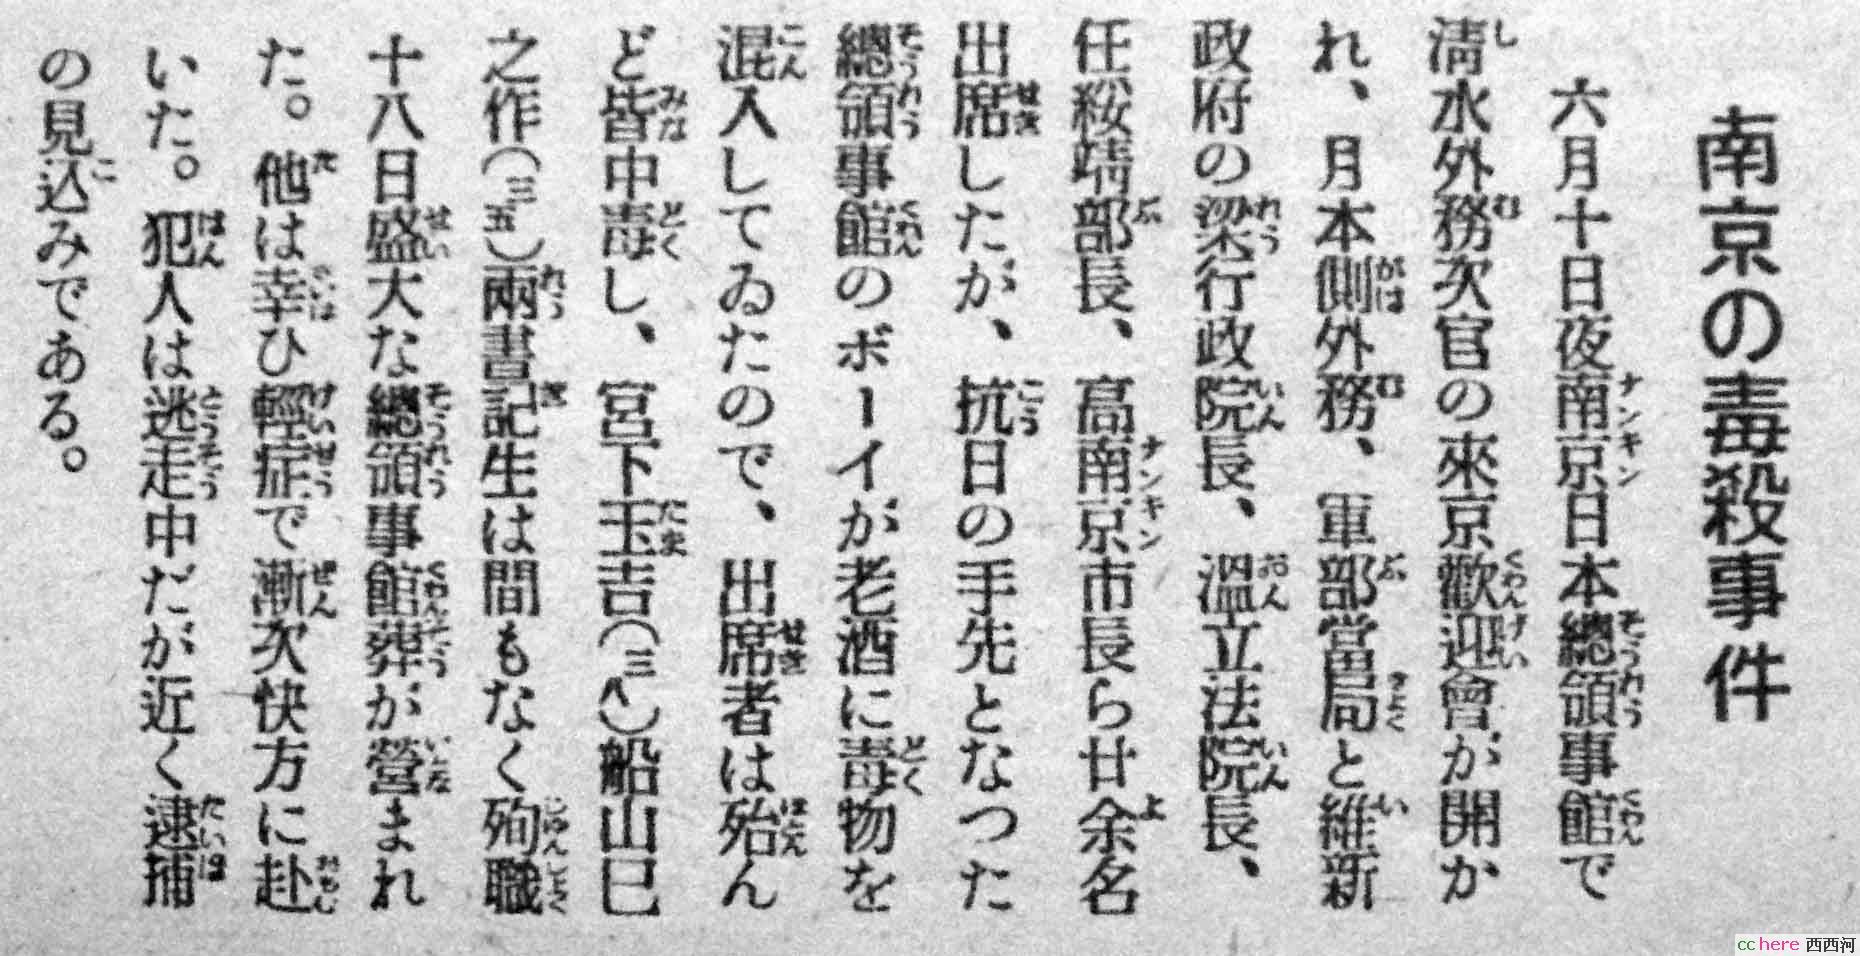 南京の毒殺事件
六月十日夜南京日本總領事館で
淸水外務次官の來京歡迎會が開か
れ、月本側外務、軍部當局と維新
政府の梁行政院長、溫立法院長、
任綏靖部長、高南京市長ら廿余名
出席したが、抗日の手先となつた
總領事館のボーイが老酒に毒物を
混入してゐたので、出席者は殆ん
ど皆中毒し、宮下玉吉(三八)船山巳
之作(三五)兩書記生は間もなく殉職
十八日盛大な總領事館葬が營まれ
た。他は幸ひ輕症で漸次快方に赴
いた。犯人は逃走中だが近く逮捕
の見込みである。
cchere 西西河